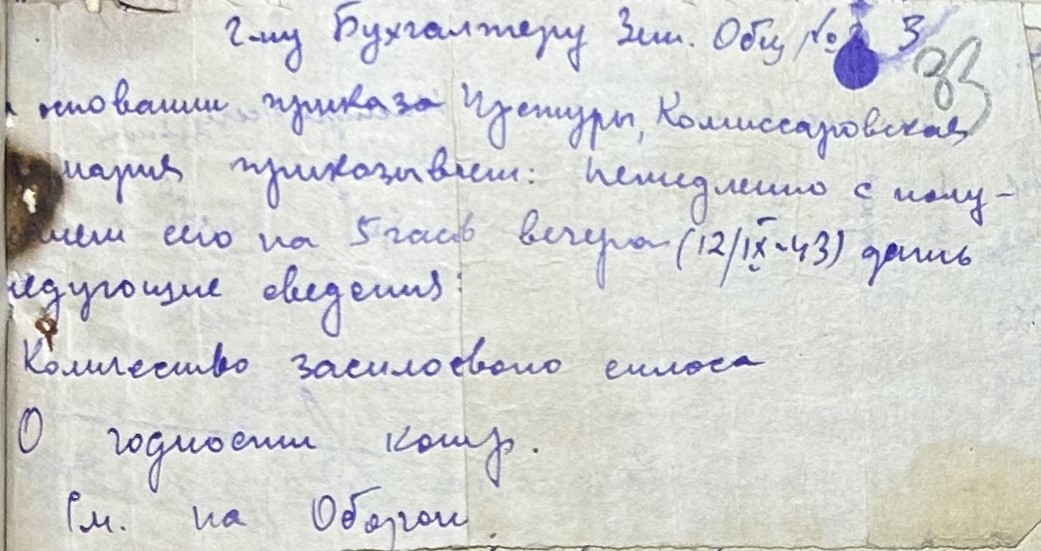 г-му Бухгалтеру Зем. Общ № 3
33
основании приказа Комиссаровская
приказывает: Немедленно с полу-
чением сего на 5 часов вечера (12/IX-43) дать
ледующие сведения:
Количество засилосваного силоса
О годности
См. на Оборот